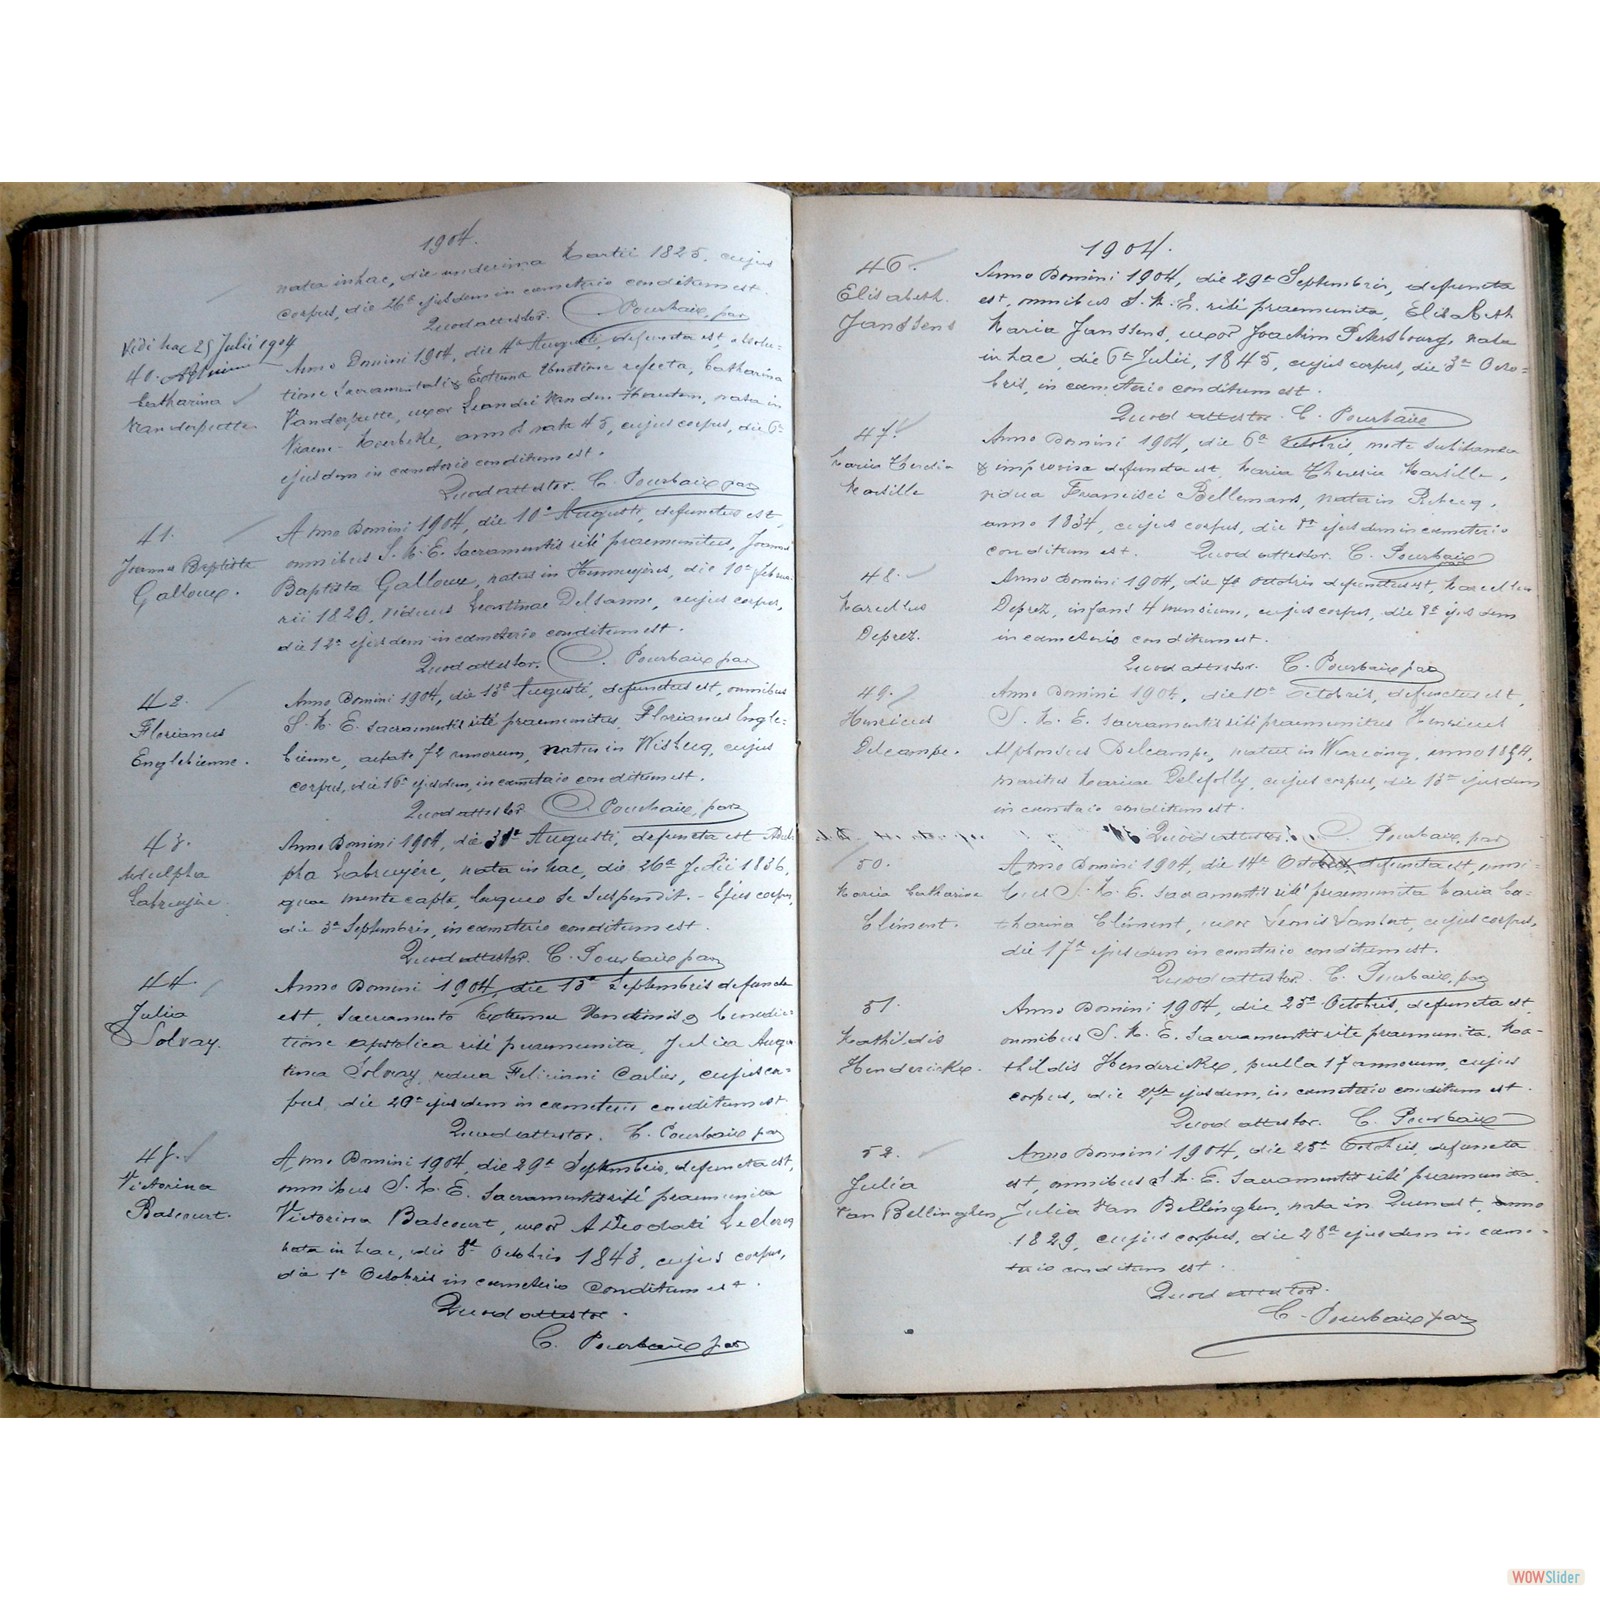 1904.
nata in hac, die undecima Martii 1825, cujus
corpus, die 26a ejusdem in cæmeterio conditum est.
Quod attestor. C. Pourbaix, par
Vidi hac 25 Julii 1904
40.
Catharina
Vanderputte.
Anno Domini 1904, die 4a Augusti defuncta est, absolu-
tione Sacramentali & Extrema Unctione refecta, Catharina
Vanderputte, uxor Leandri Van den Houten, nata in
annos nata 45, cujus corpus, die 6a
ejusdem in cæmeterio conditum est.
Quod attestor. C. Pourbaix par
41.
Joannes Baptista
Galloux.
Anno Domini 1904, die 10a Augusti, defunctus est,
omnibus S. M. E. Sacramentis rité præmunitus, Joannes
Baptista Galloux, natus in Hennuyères, die 10a februa-
rii 1820, viduus Leontinae Delsanne, cujus corpus,
die 12a ejusdem in cæmeterio conditum est.
Quod attestor. C. Pourbaix par
42.
Florianus
Englebienne.
Anno Domini 1904, die 13a Augusti, defunctus est, omnibus
S. M. E. Sacramentis rité præmunitus, Florianus Engle-
bienne, aetate 72 annorum, natus in Wisbecq, cujus
corpus, die 16a ejusdem, in cæmeterio conditum est.
Quod attestor C. Pourbaix, par
43.
Adulpha
Labruyère.
Anno Domini 1904, die 31a Augusti, defuncta est Adul-
pha Labruyère, nata in hac, die 26a Julii 1836,
quae mente capta, laqueo se suspendit. - Ejus corpus,
die 3a Septembris, in cæmeterio conditum est.
Quod attestor. C. Pourbaix par
44.
Julia
Solvay.
Anno Domini 1904, die 15a Septembris defuncta
est, Sacramento Extremae Unctionis & benedic-
tione apostolica rité præmunita, Julia Augus-
tina Solvay, vidua Feliciani Carlier, cujus cor-
pus, die 20a ejusdem in cæmeterio conditum est
Quod attestor. C. Pourbaix par
45.
Victorina
Bascourt.
Anno Domini 1904, die 29a Septembris, defuncta est,
omnibus S. M. E. Sacramentis rité præmunita
Victorina Bascourt, uxor Adeodati Leclercq
nata in hac, die 8a Octobris 1843, cujus corpus,
die 1a Octobris in cæmeterio conditum est.
Quod attestor.
C. Pourbaix par
1904.
46.
Elisabeth
Janssens
Anno Domini 1904, die 29a Septembris, defuncta
est, omnibus S. M. E. rité præmunita, Elisabeth
Maria Janssens, uxor Joachim Petersbourg, nata
in hac, die 6a Julii, 1845, cujus corpus, die 3a Octo-
bris, in cæmeterio conditum est.
Quod attestor. C. Pourbaix
47.
Maria Theresia
Marsille
Anno Domini 1904, die 6a Octobris, morte subitanea
& improvisa defuncta est, Maria Theresia Marsille,
vidua Francisci Bellemans, nata in Rebecq,
anno 1834, cujus corpus, die 8a ejusdem in cæmeterio
conditum est. Quod attestor. C. Pourbaix
48.
Marcellus
Deprez.
Anno Domini 1904, die 7a Octobris defunctus est, Marcellus
Deprez, infans 4 mensium, cujus corpus, die 8a ejusdem
in cæmeterio conditum est.
Quod attestor. C. Pourbaix par
49.
Henricus
Delcampe.
Anno Domini 1904, die 10a Octobris, defunctus est,
S. M. E. Sacramentis rité præmunitus Henricus
Alphonsus Delcampe, natus in Warcoing, anno 1854,
maritus Mariae Delefolly, cujus corpus, die 13a ejusdem
in cæmeterio conditum est.
Quod attestor. C. Pourbaix, par
50.
Maria Catharina
Clément.
Anno Domini 1904, die 14a Octobris, defuncta est, omni-
bus S. M. E. Sacramentis rité præmunita Maria Ca-
tharina Clément, uxor Lambert, cujus corpus,
die 17a ejusdem in cæmeterio conditum est.
Quod attestor. C. Pourbaix, par
51.
Mathildis
Henderickx.
Anno Domini 1904, die 25a Octobris, defuncta est,
omnibus S. M. E. Sacramentis rite præmunita, Ma-
thildis Henderickx, puella 17 annorum, cujus
corpus, die 27a ejusdem, in cæmeterio conditum est.
Quod attestor. C. Pourbaix
52.
Julia
Van Bellinghen
Anno Domini 1904, die 25a Octobris, defuncta
est, omnibus S. M. E. Sacramentis rité præmunita,
Julia Van Bellinghen, nata in Quenast, anno
1829, cujus corpus, die 28a ejusdem in cæme-
terio conditum est.
Quod attestor.
C. Pourbaix par
WOWSlider